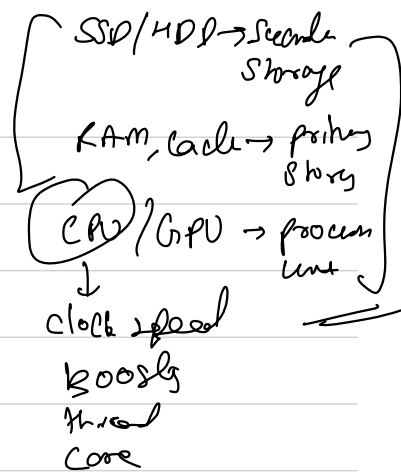 SSD/HDD → Seconda
Storage
RAM, Cache → primary
Story
CPU / GPU → process
unit
clock speed
Boosts
thread
Core